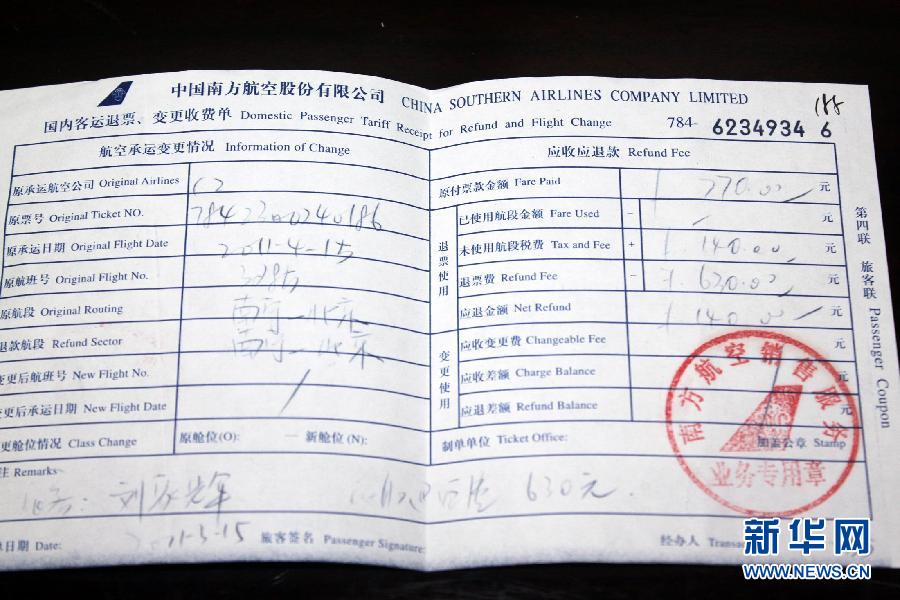 中国南方航空股份有限公司 CHINA SOUTHERN AIRLINES COMPANY LIMITED
188
国内客运退票、变更收费单 Domestic Passenger Tariff Receipt for Refund and Flight Change 784- 6234934 6
航空承运变更情况 Information of Change
原承运航空公司 Original Airlines CZ
原票号 Original Ticket NO.
原承运日期 Original Flight Date 2011-4-15
原航班号 Original Flight No.
原航段 Original Routing 南宁—北京
退款航段 Refund Sector 南宁—北京
变更后航班号 New Flight No.
变更后承运日期 New Flight Date
变更舱位情况 Class Change 原舱位(O): — 新舱位(N):
应收应退款 Refund Fee
原付票款金额 Fare Paid ¥ 770.00 元
退票使用
已使用航段金额 Fare Used − 元
未使用航段税费 Tax and Fee + ¥ 140.00 元
退票费 Refund Fee − ¥ 630.00 元
应退金额 Net Refund ¥ 140.00 元
变更使用
应收变更费 Changeable Fee 元
应收差额 Charge Balance 元
应退差额 Refund Balance 元
制单单位 Ticket Office:
加盖公章 Stamp
南方航空销售服务
业务专用章
第四联 旅客联 Passenger Coupon
注 Remarks
630元.
单日期 Date: 2011-3-15 旅客签名 Passenger Signature: 经办人
新华网
WWW.NEWS.CN